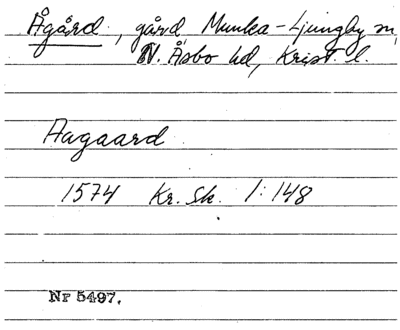 Ågård, gård, Munka-Ljungby sn,
N. Åsbo hd, Krist. l.
Aagaard
1574 Kr. Sk. 1:148
Nr 5497.